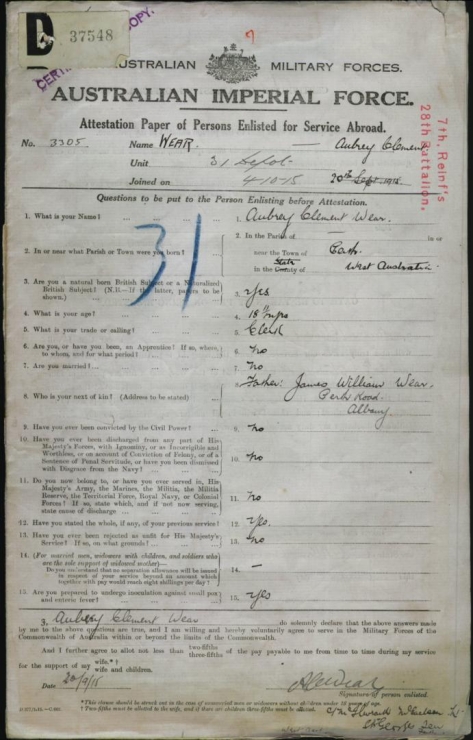 D 37548
CERT COPY.
9
AUSTRALIAN MILITARY FORCES.
AUSTRALIAN IMPERIAL FORCE.
7th, Reinf's
28th Battalion,
Attestation Paper of Persons Enlisted for Service Abroad.
No. 3305 Name WEAR. — Aubrey Clement
Unit 31 Depot
Joined on 4-10-15 20th Sept 1915
Questions to be put to the Person Enlisting before Attestation.
31
1. What is your Name? ... 1. Aubrey Clement Wear.
2. In or near what Parish or Town were you born? 2. In the Parish of — in or
near the Town of
In the County of State West Australia
3. Are you a natural born British Subject or a Naturalized
British Subject? (N.B.—If the latter, papers to be
shown.) 3. Yes
4. What is your age? 4.
5. What is your trade or calling? 5. Clerk
6. Are you, or have you been, an Apprentice? If so, where,
to whom, and for what period? 6. No
7. Are you married? 7. No
8. Who is your next of kin? (Address to be stated) 8. Father: James William Wear.
Perth Road.
Albany
9. Have you ever been convicted by the Civil Power? 9. No
10. Have you ever been discharged from any part of His
Majesty's Forces, with Ignominy, or as Incorrigible and
Worthless, or on account of Conviction of Felony, or of a
Sentence of Penal Servitude, or have you been dismissed
with Disgrace from the Navy? 10. No
11. Do you now belong to, or have you ever served in, His
Majesty's Army, the Marines, the Militia, the Militia
Reserve, the Territorial Force, Royal Navy, or Colonial
Forces? If so, state which, and if not now serving,
state cause of discharge 11. No
12. Have you stated the whole, if any, of your previous service? 12. Yes.
13. Have you ever been rejected as unfit for His Majesty's
Service? If so, on what grounds? 13. No
14. (For married men, widowers with children, and soldiers who
are the sole support of widowed mother)—
Do you understand that no separation allowance will be issued
in respect of your service beyond an amount which
together with pay would reach eight shillings per day? 14. —
15. Are you prepared to undergo inoculation against small pox
and enteric fever? 15. Yes
I, Aubrey Clement Wear do solemnly declare that the above answers made
by me to the above questions are true, and I am willing and hereby voluntarily agree to serve in the Military Forces of the
Commonwealth of Australia within or beyond the limits of the Commonwealth.
And I further agree to allot not less than two-fifths three-fifths of the pay payable to me from time to time during my service
for the support of my wife.*† wife and children.
Date 20/9/15
A C Wear
Signature of person enlisted.
*This clause should be struck out in the case of unmarried men or widowers without children under 18 years of age.
†Two fifths must be allotted to the wife, and if there are children three-fifths must be allotted.
St George